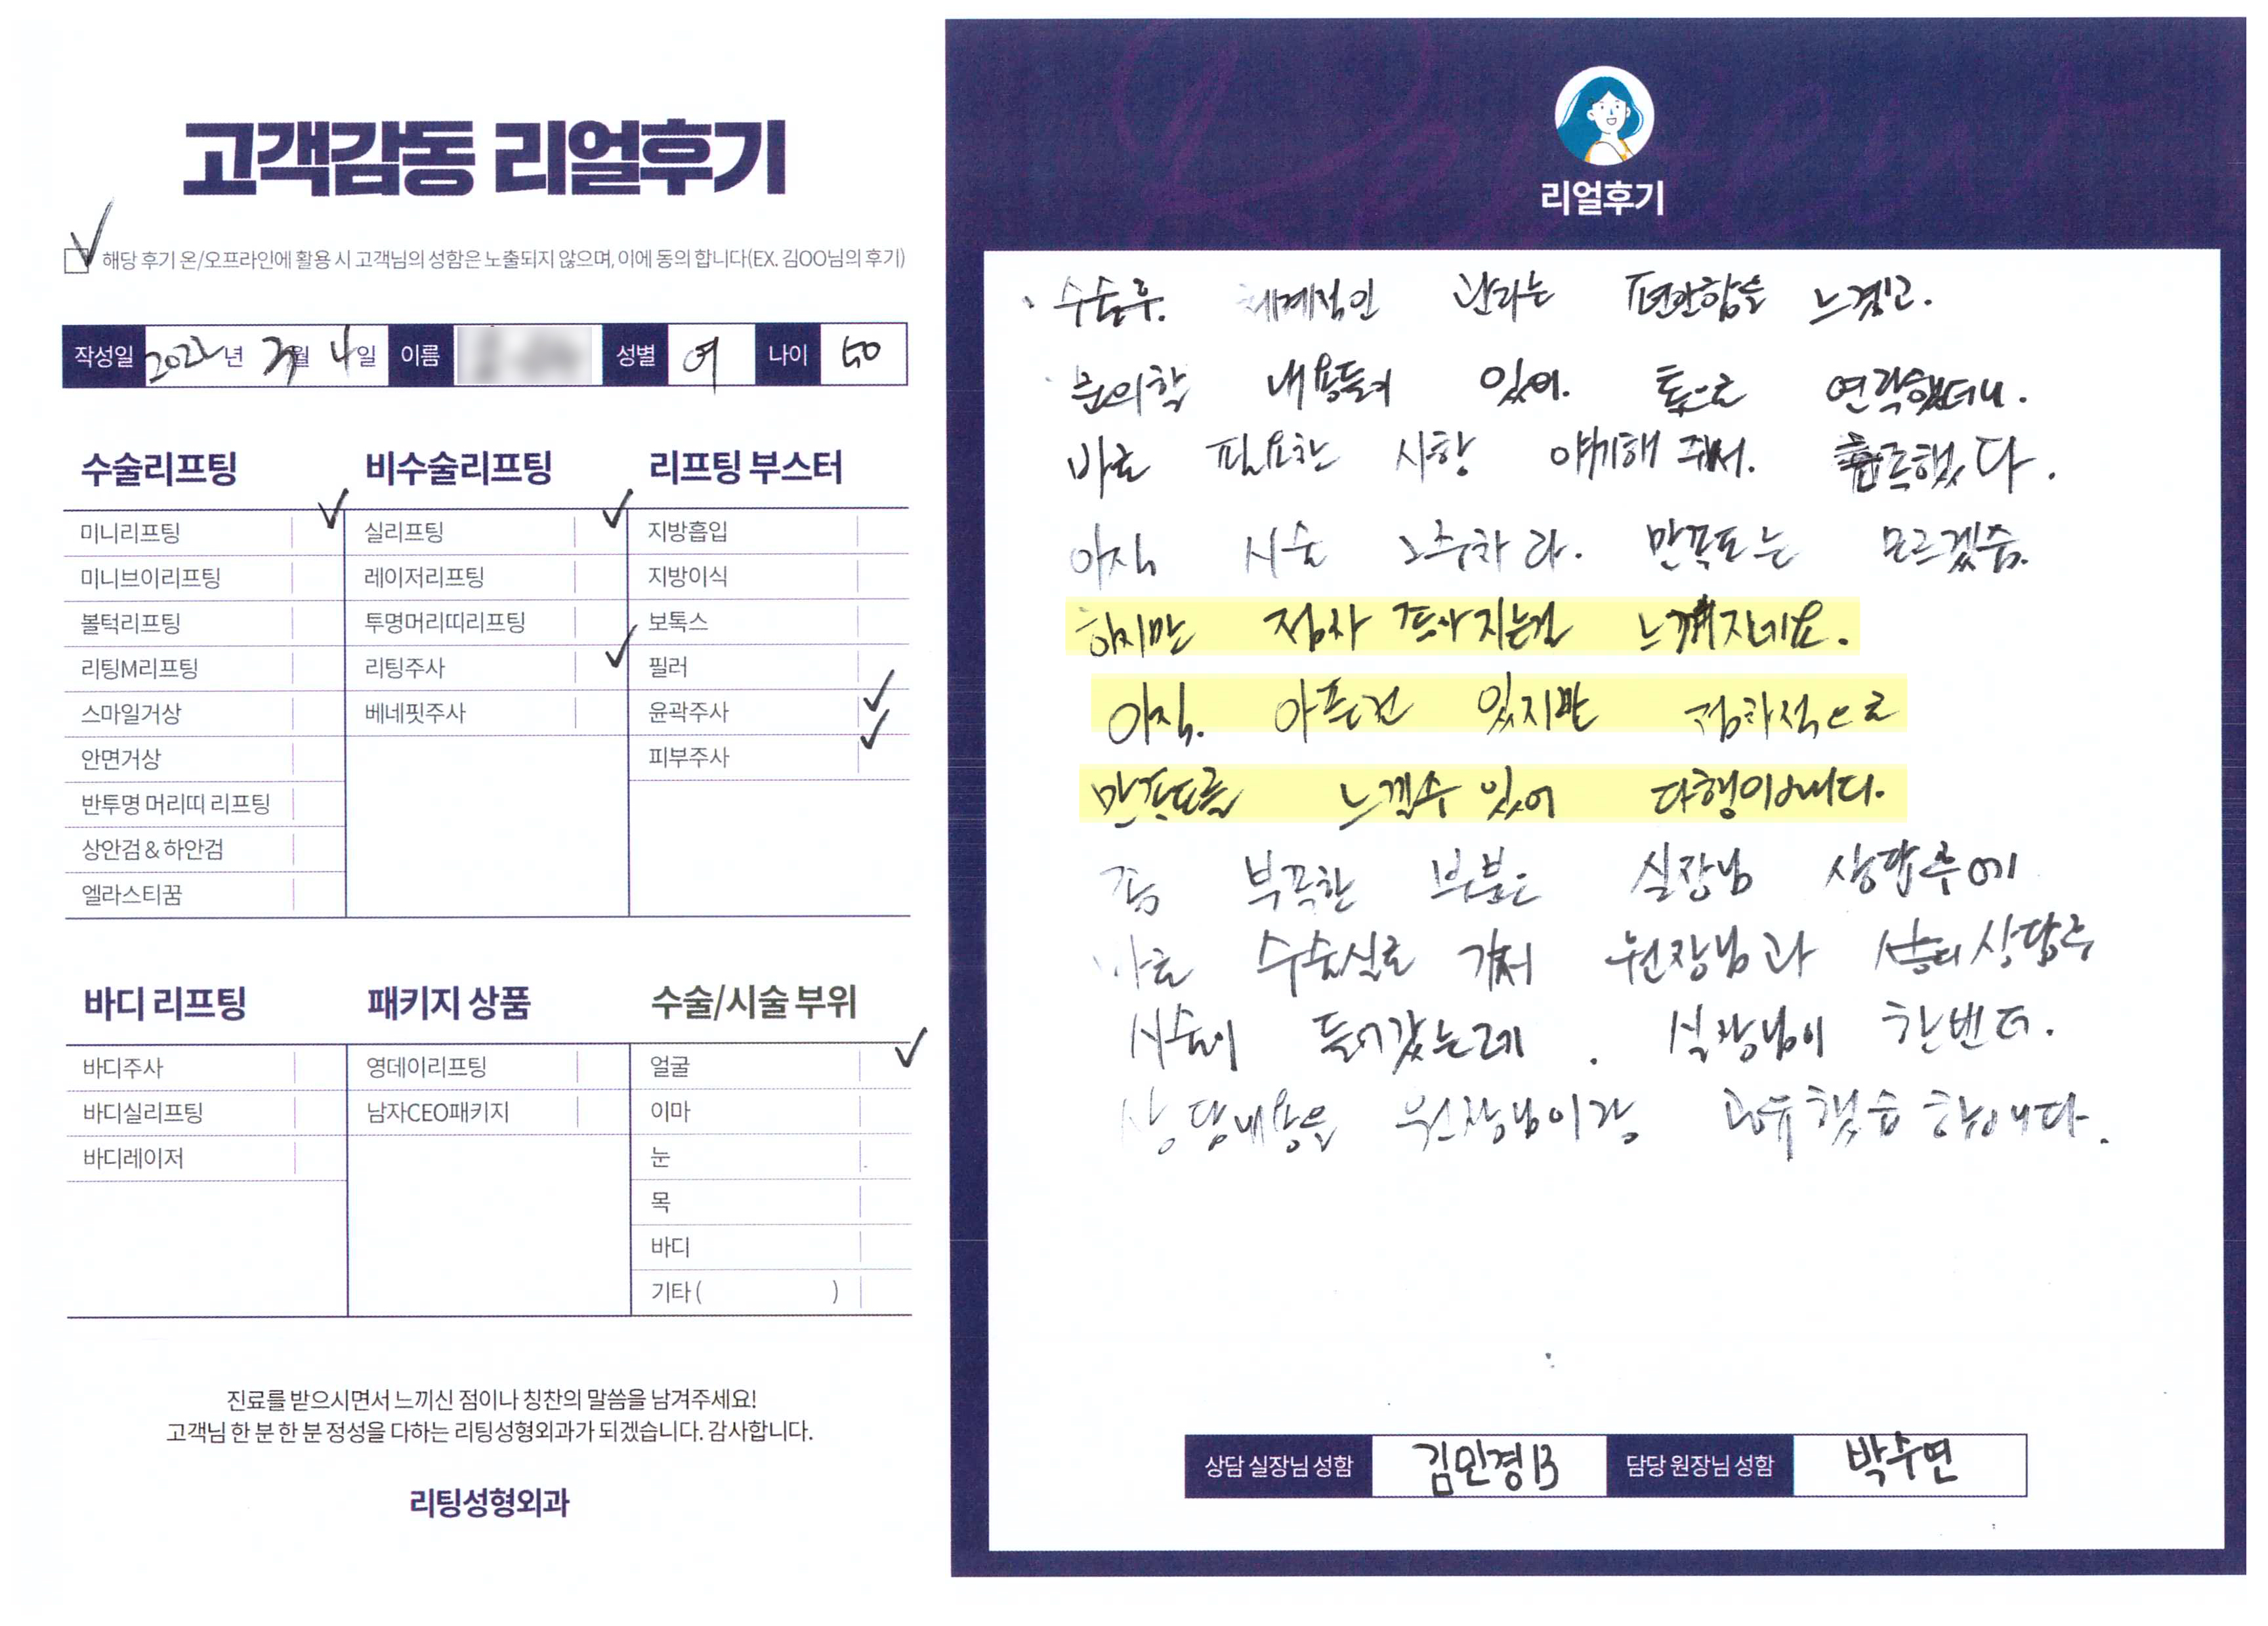 고객감동 리얼후기
해당 후기 온/오프라인에 활용 시 고객님의 성함은 노출되지 않으며, 이에 동의 합니다(EX. 김OO님의 후기)
작성일 2022년 3월 4일 이름 성별 여 나이 50
수술리프팅
미니리프팅
미니브이리프팅
볼턱리프팅
리팅M리프팅
스마일거상
안면거상
반투명 머리띠 리프팅
상안검 & 하안검
엘라스티꿈
비수술리프팅
실리프팅
레이저리프팅
투명머리띠리프팅
리팅주사
베네핏주사
리프팅 부스터
지방흡입
지방이식
보톡스
필러
윤곽주사
피부주사
바디 리프팅
바디주사
바디실리프팅
바디레이저
패키지 상품
영데이리프팅
남자CEO패키지
수술/시술 부위
얼굴
이마
눈
목
바디
기타 ( )
진료를 받으시면서 느끼신 점이나 칭찬의 말씀을 남겨주세요!
고객님 한 분 한 분 정성을 다하는 리팅성형외과가 되겠습니다. 감사합니다.
리팅성형외과
리얼후기
수술후. 체계적인 관리는 편안함을 느꼈고.
문의할 내용들이 있어. 톡으로 연락했더니.
바로 필요한 사항 얘기해 줘서. 했다.
아직 시술 2주차라. 만족도는 모르겠음.
하지만 점차 좋아지는걸 느껴지네요.
아직. 아픈건 있지만 점차적으로
만족도를 느낄수 있어 다행이네다.
좀 부족한 부분은 실장님 상담후에
바로 수술실로 가서 원장님과 상담후
시술이 들어갔는데. 실장님이 한번더.
상담내용을 원장님이랑 공유했음 합니다.
상담 실장님 성함 김민경B 담당 원장님 성함 박수연